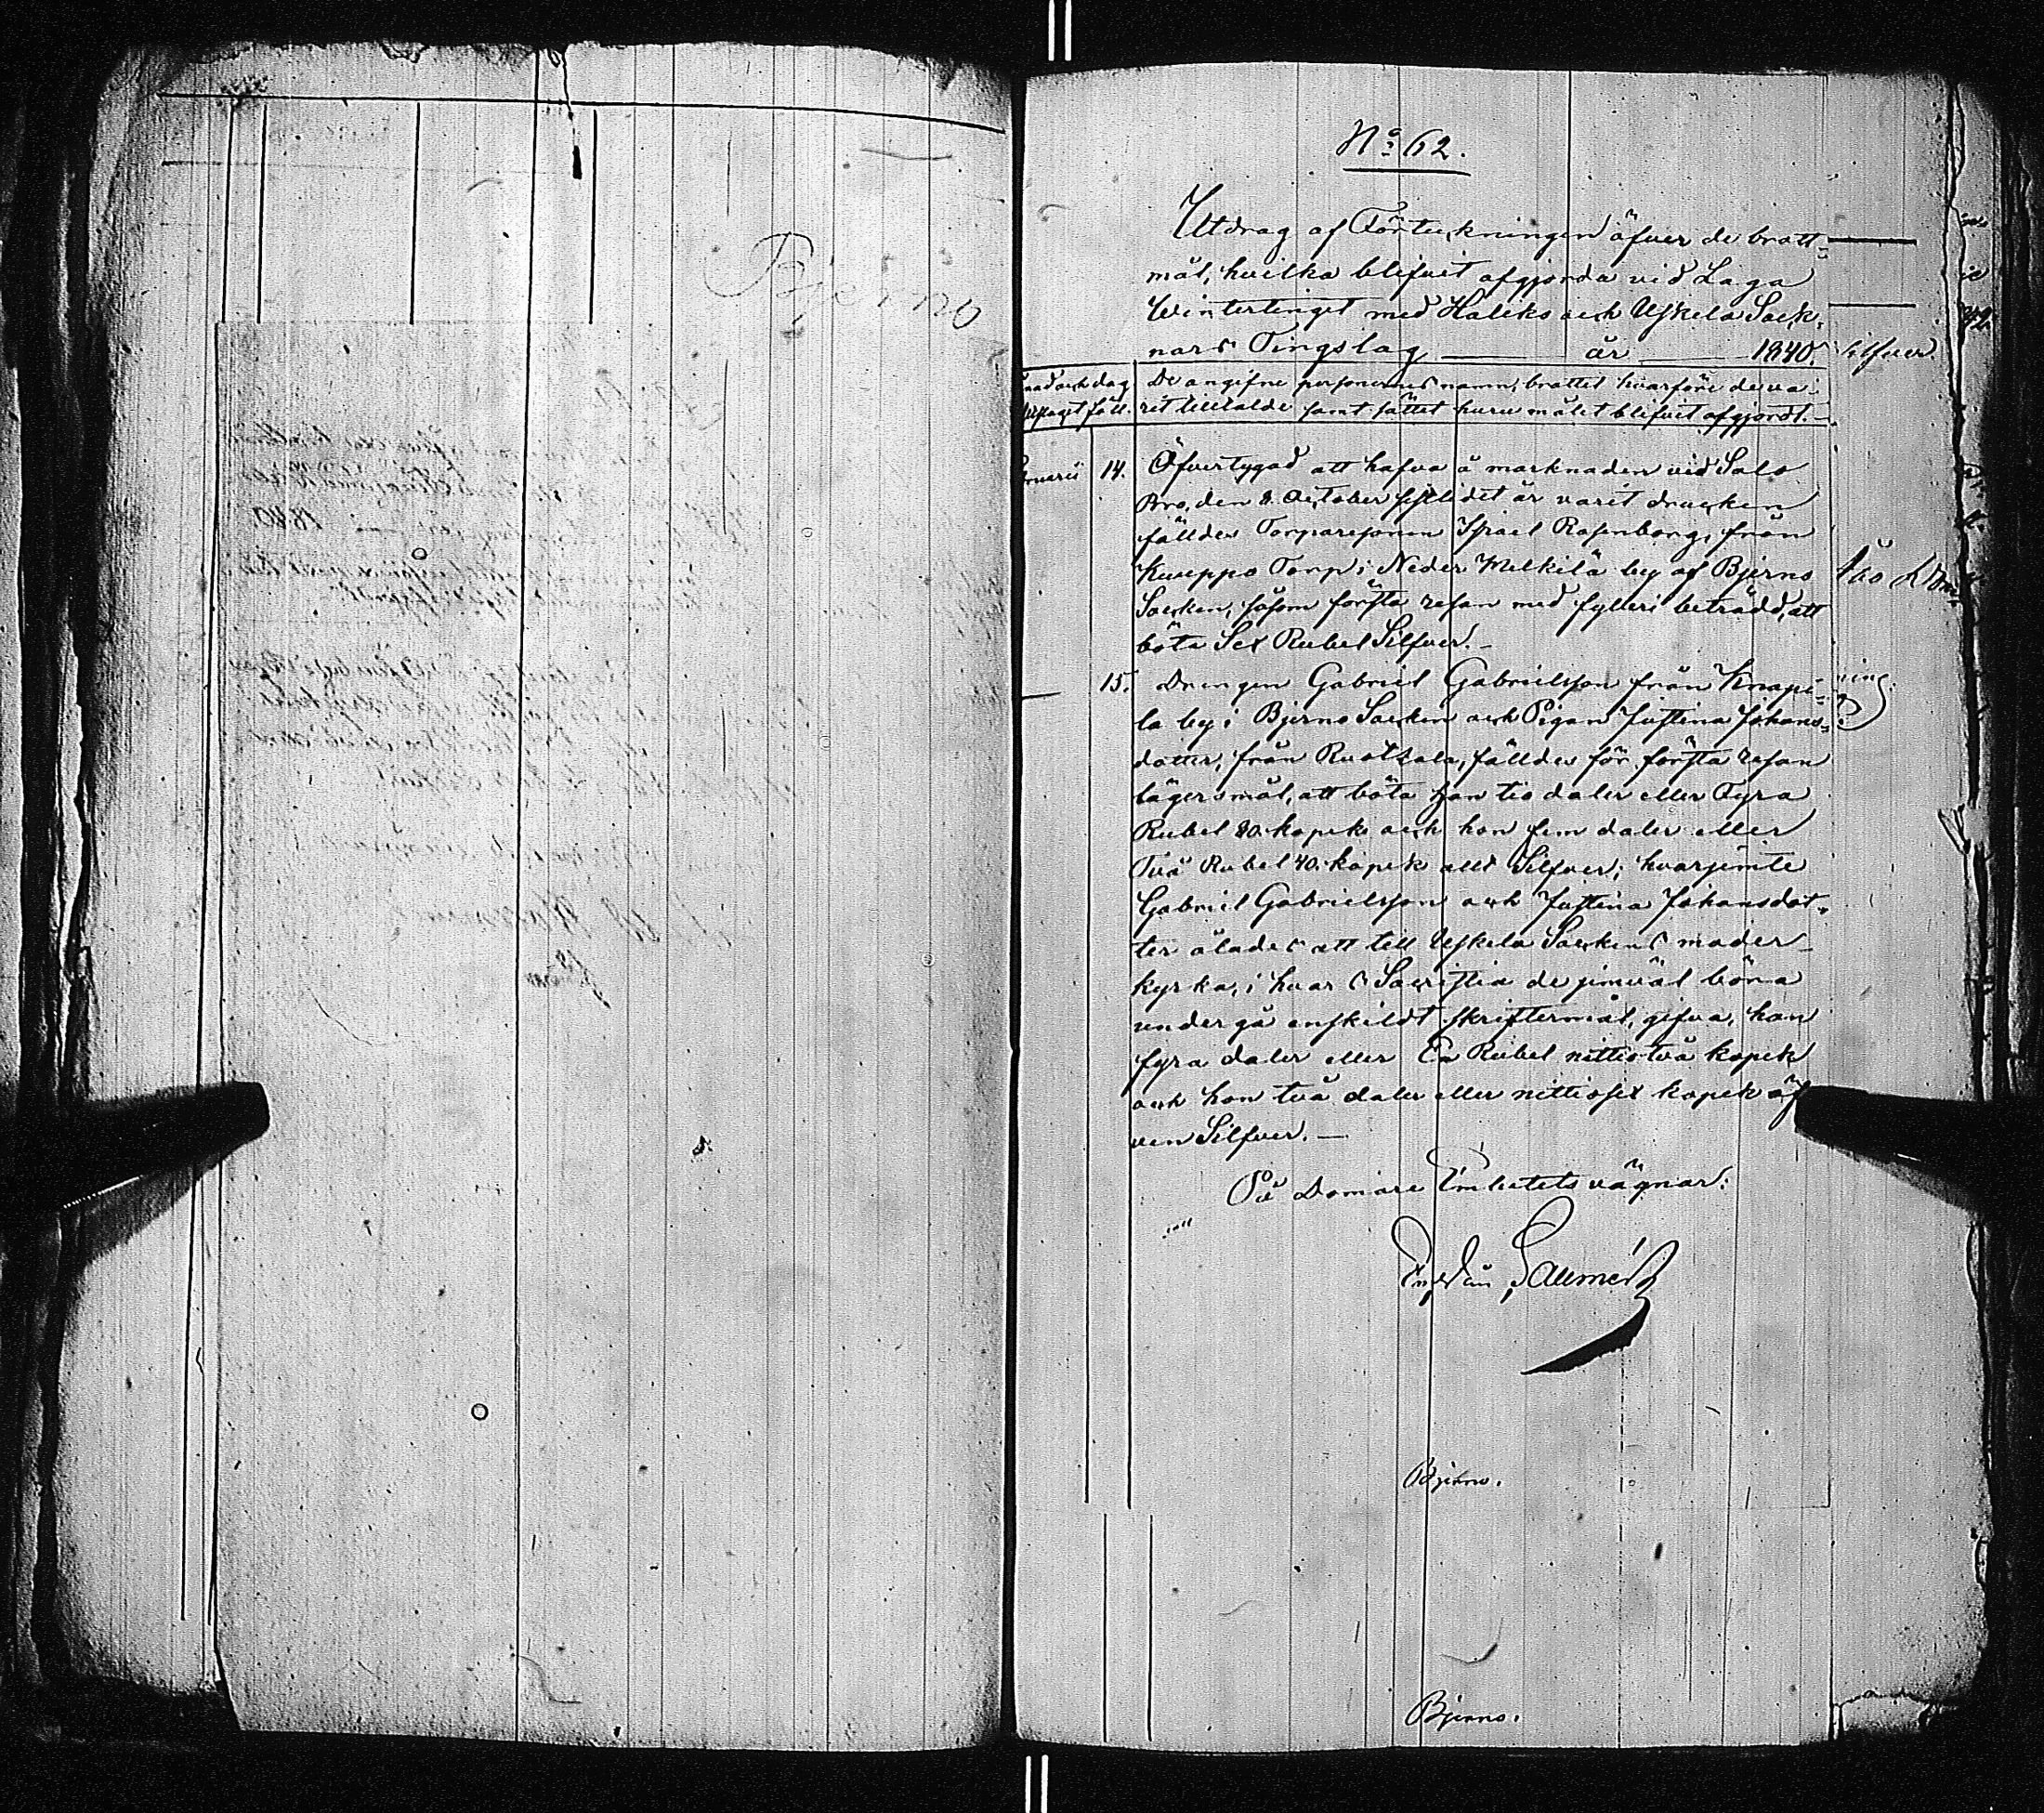 Bjerno
No 62.
Utdrag af Förteckningen öfver de brott-
mål, hvilka blifvit afgjorda vid Laga
Wintertinget med Haliko och Uskela Sock-
nars Tingslag år 1840.
Silfver
nad och dag De angifne personernes namn, brottet hvarföre de va-
utslaget föll. rit tilltalde samt sättet huru målet blifvit afgjordt.
bruarii 14. Öfvertygad att hafva å marknaden vid Salo
Bro, den 8 October sistlidet år varit drucken
fälldes Torparesonen Israel Rosenborg, från
Kuseppo Torp i Neder Melkilä by af Bjerno
Socken, såsom första resan med fylleri beträdd, att
böta Sex Rubel Silfver. —
15. Drengen Gabriel Gabrielsson från Knapi-
la by i Bjerno Socken och Pigan Justina Johans-
dotter, från Ruotsala, fälldes för första resan
lägersmål, att böta han tio daler eller Fyra
Rubel 80. kopek och hon fem daler eller
Två Rubel 40. kopek allt Silfver; hvarjemte
Gabriel Gabrielsson och Justina Johansdot-
ter ålades att till Uskela Sockens moder-
kyrka, i hvars Sacristia de jemväl böra
undergå enskildt skriftermål, gifva, han
fyra daler eller En Rubel nittiotvå kopek
och hon två daler eller nittiosex kopek äf
ven Silfver. —
På Domare Embetets vägnar:
Bjerno.
Bjerno.